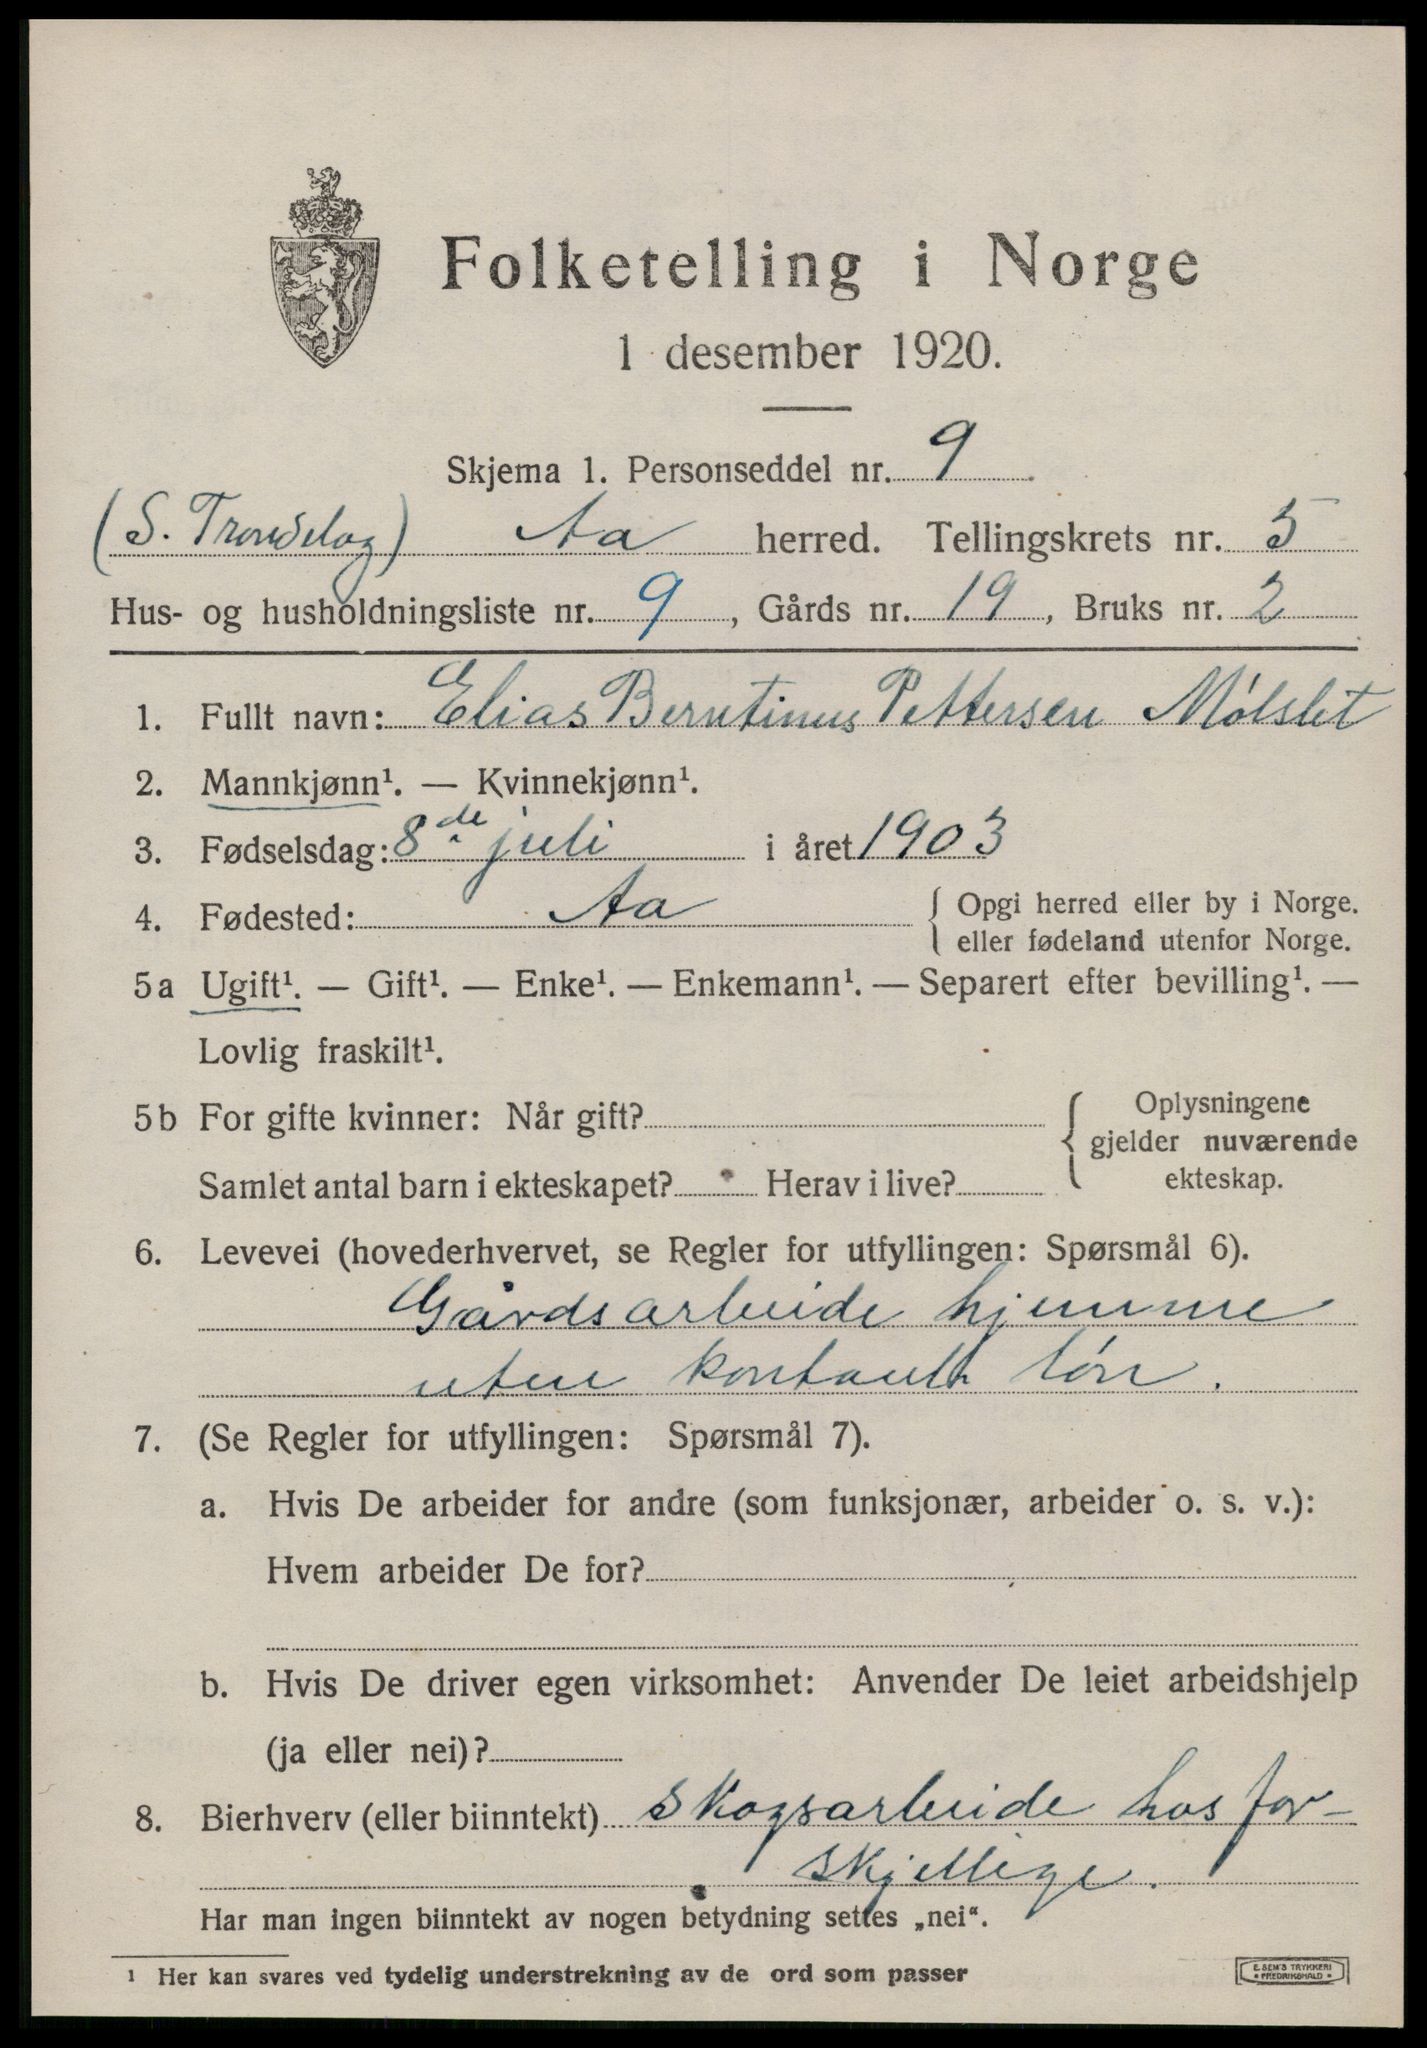 Folketelling i Norge
1 desember 1920.
Skjema 1. Personseddel nr. 9
(S. Trondelag) Aa herred. Tellingskrets nr. 5
Hus- og husholdningsliste nr. 9, Gårds nr. 19, Bruks nr. 2
1. Fullt navn: Elias Berntinus Pettersen Mølslet
2. Mannkjønn¹. — Kvinnekjønn¹.
3. Fødselsdag: 8de juli i året 1903
4. Fødested: Aa { Opgi herred eller by i Norge.
eller fødeland utenfor Norge.
5a Ugift¹. — Gift¹. — Enke¹. — Enkemann¹. — Separert efter bevilling¹. —
Lovlig fraskilt¹.
5b For gifte kvinner: Når gift?
Samlet antal barn i ekteskapet? Herav i live?
{ Oplysningene
gjelder nuværende
ekteskap.
6. Levevei (hovederhvervet, se Regler for utfyllingen: Spørsmål 6).
Gårdsarbeide hjemme
uten kontant løn.
7. (Se Regler for utfyllingen: Spørsmål 7).
a. Hvis De arbeider for andre (som funksjonær, arbeider o. s. v.):
Hvem arbeider De for?
b. Hvis De driver egen virksomhet: Anvender De leiet arbeidshjelp
(ja eller nei)?
8. Bierhverv (eller biinntekt) Skogsarbeide hos for-
skjellige.
Har man ingen biinntekt av nogen betydning settes „nei“.
¹ Her kan svares ved tydelig understrekning av de ord som passer
E. SEM'S TRYKKERI
FREDRIKSHALD